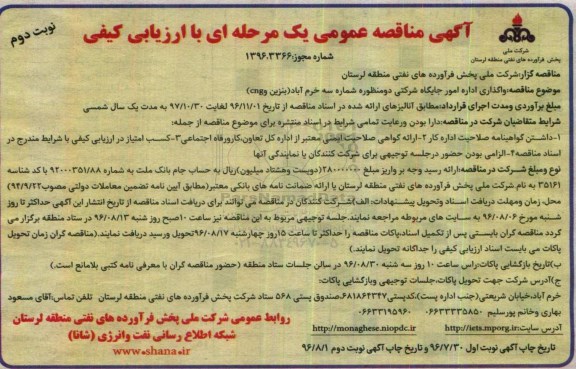 نوبت دوم
آگهی مناقصه عمومی یک مرحله ای با ارزیابی کیفی
شرکت ملی
پخش فرآورده های نفتی منطقه لرستان
شماره مجوز:۱۳۹۶.۳۳۶۶
مناقصه گزار:شرکت ملی پخش فرآورده های نفتی منطقه لرستان
موضوع مناقصه:واگذاری اداره امور جایگاه شرکتی دومنظوره شماره سه خرم آباد(بنزین وcng)
مبلغ برآوردی ومدت اجرای قرارداد:مطابق آنالیزهای ارائه شده در اسناد مناقصه از تاریخ ۹۶/۱۱/۰۱ لغایت ۹۷/۱۰/۳۰ به مدت یک سال شمسی
شرایط متقاضیان شرکت در مناقصه:دارا بودن ورعایت تمامی شرایط در اسناد منتشره برای موضوع مناقصه از جمله:
۱-داشتن گواهینامه صلاحیت اداره کار ۲-ارائه گواهی صلاحیت ایمنی معتبر از اداره کل تعاون،کارورفاه اجتماعی۳-کسب امتیاز در ارزیابی کیفی با شرایط مندرج در
اسناد مناقصه۴-الزامی بودن حضور درجلسه توجیهی برای شرکت کنندگان یا نمایندگی آنها
نوع ومبلغ شرکت در مناقصه:ارائه رسید وجه بر واریز مبلغ ۲۸۰۰۰۰۰۰۰(دویست وهشتاد میلیون)ریال به حساب جام بانک ملت به شماره ۹۲۰۰۰۳۵۱۸۸ با کد شناسه
۳۵۱۶۱ به نام شرکت ملی پخش فرآورده های نفتی منطقه لرستان یا ارائه ضمانت نامه های بانکی معتبر(مطابق آیین نامه تضمین معاملات دولتی مصوب۹۴/۹/۲۲)
محل زمان ومهلت دریافت اسناد وتحویل پیشنهادات: الف)شرکت کنندگان در مناقصه می توانند برای دریافت اسناد مناقصه از تاریخ انتشار این آگهی حداکثر تا روز
شنبه مورخ ۹۶/۰۸/۰۶ به سایت های مربوطه مراجعه نمایند.جلسه توجیهی مربوط به این مناقصه نیز ساعت ۱۰صبح روز شنبه ۹۶/۰۸/۱۳ در ستاد منطقه برگزار می
گردد مناقصه گران بایستی پس از تکمیل اسناد،پاکات مناقصه را حداکثر تا ساعت ۱۵روز چهارشنبه ۹۶/۰۸/۱۷تحویل ورسید دریافت نمایند.(مناقصه گران زمان تحویل
پاکات می بایست اسناد ارزیابی کیفی را جداگانه تحویل نمایند.)
ب)تاریخ بازگشایی پاکات:راس ساعت ۱۰ روز سه شنبه ۹۶/۰۸/۳۰ در سالن جلسات ستاد منطقه (حضور مناقصه گران با معرفی نامه کتبی بلامانع است.)
ج)آدرس شرکت جهت تحویل پاکات،جلسات توجیهی وبازگشایی پاکات:
خرم آباد،خیابان شریعتی(جنب اداره پست)،کدپستی۶۸۱۸۶۴۳۴۷،صندوق پستی ۵۶۸ ستاد شرکت پخش فرآورده های نفتی منطقه لرستان تلفن تماس:آقای مسعود
بهاری وخانم پورسلیم ۰۶۶۳۳۳۳۵۸۵۰ ۰۶۶۳۳۱۹۵۹۶۰
آدرس سایت:http://iets.mporg.ir http://monaghese.niopdc.ir
روابط عمومی شرکت ملی پخش فرآورده های نفتی منطقه لرستان
شبکه اطلاع رسانی نفت وانرژی (شانا)
www.shana.ir
تاریخ چاپ آگهی نوبت اول ۹۶/۷/۳۰ و تاریخ چاپ آگهی نوبت دوم ۹۶/۸/۱